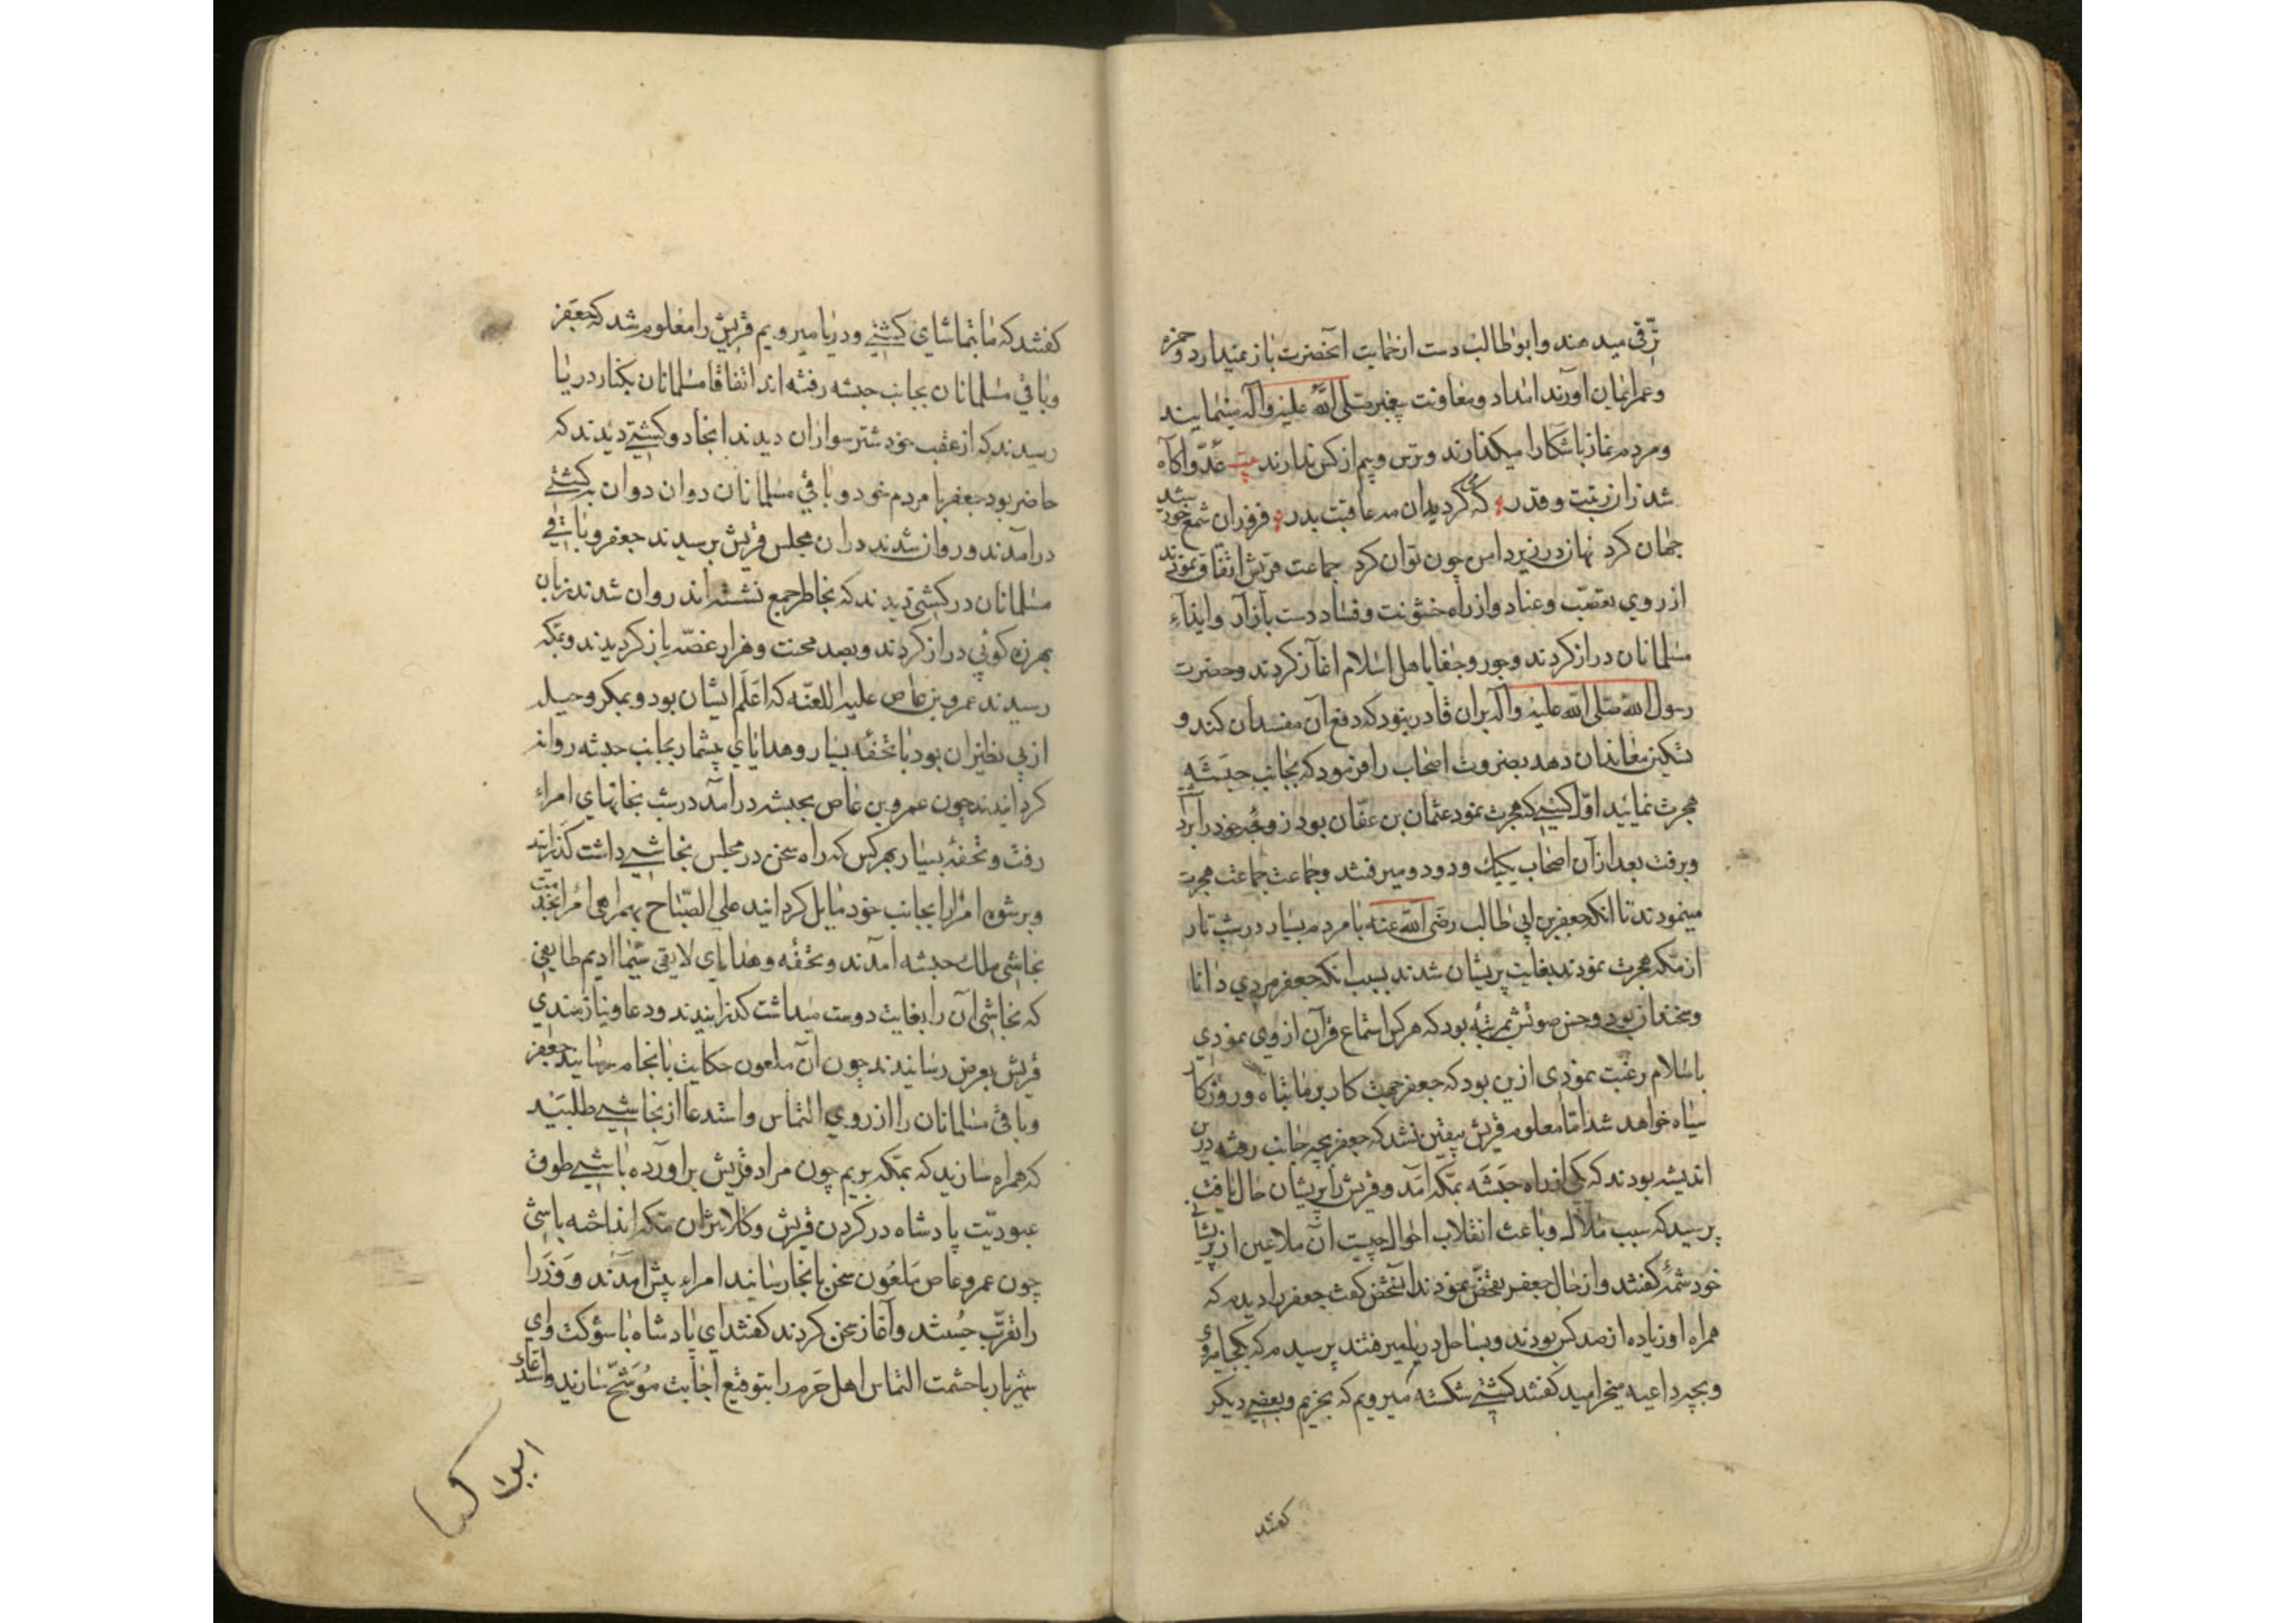 ترقی میدهند وابوطالب دست از حمایت آنحضرت باز نمیدارد وحمزه
وعمر ایمان آوردند امداد ومعاونت پیغمبر صلی الله علیه وآله مینمایند
ومردم نماز باشکارا میکذارند وترس وبیم از کس ندارند بیت عدو آکاه
شد زان زینت وقدر که کردیدان مه عاقبت بدر فروزان شمع خورشید
جهان کرد نهان در زیر دامن چون توان کرد جماعت قریش اتفاق نمودند
از روی تعصب وعناد واز راه خشونت وفساد دست بآزار وایذاء
مسلمانان دراز کردند وجور وجفا باهل اسلام آغاز کردند وحضرت
رسول الله صلی الله علیه وآله بران قادر نبود که دفع آن مفسدان کند و
تسکین معاندان دهد بضرورت اصحاب را فرمود که بجانب حبشه
هجرت نمایید اول کسی که هجرت نمود عثمان بن عفان بود زوجه خود را برد
وبرفت بعد از آن اصحاب یکیک ودو دو میرفتند وجماعت جماعت هجرت
مینمودند تا انکه جعفر بن ابی طالب رضی الله عنه با مردم بسیار در شب تار
از مکه هجرت نمودند بغایت پریشان شدند بسبب انکه جعفر مردی دانا
وسخندان بود وحسن صوتش بمرتبه بود که هرکس استماع قرآن از وی نمودی
باسلام رغبت نمودی ازین بود که جعفر کار بر ما تباه وروزکار
سیاه خواهد شد اما معلوم قریش بیقین نشد که جعفر بچه جانب رفته درین
اندیشه بودند که یکی از راه حبشه بمکه آمد وقریش را پریشان حال یافت
پرسید که سبب ملال وباعث انقلاب احوال چیست آن ملاعین از پریشانی
خود شمه کفتند واز حال جعفر تفحص نمودند آنشخص کفت جعفر را دیدم که
همراه او زیاده از صد کس بودند وبساحل دریا میرفتند پرسیدم که بکجا میروی
وبچه داعیه میخرامید کفتند کشتی شکسته میرویم که بخریم وبعضی دیکر
کفتند
کفتند که ما بتماشای کشتی ودریا میرویم قریش را معلوم شد که جعفر
وباقی مسلمانان بجانب حبشه رفته اند اتفاقا مسلمانان بکنار دریا
رسیدند که از عقب خود شتر سواران دیدند انجا دو کشتی دیدند که
حاضر بود جعفر با مردم خود وباقی مسلمانان دوان دوان بکشتی
درآمدند وروان شدند دران مجلس قریش برسیدند جعفر وباقی
مسلمانان در کشتی دیدند که بخاطر جمع نشسته اند روان شدند زبان
بهرزه کوئی دراز کردند وبصد محنت وهزار غصه باز کردیدند وبمکه
رسیدند عمرو بن عاص علیه اللعنه که اعلم ایشان بود وبمکر وحیله
از بی نظیران بود با تحفه بسیار وهدایای بیشمار بجانب حبشه روانه
کردانیدند چون عمرو بن عاص بحبشه درآمد در شب بخانهای امراء
رفت وتحفه بسیار بهر کس که راه سخن در مجلس نجاشی داشت کذرانید
وبرشوه امرا را بجانب خود مایل کردانید علی الصباح بهمراهی امرا بخدمت
نجاشی ملک حبشه آمدند وتحفه وهدایای لایق سیما ادیم طایفی
که نجاشی آن را بغایت دوست میداشت کذرانیدند ودعا ونیازمندی
قریش بعرض رسانیدند چون آن ملعون حکایت بانجام رسانید جعفر
وباقی مسلمانان را از روی التماس واستدعا از نجاشی طلبید
که همراه سازید که بمکه بریم چون مراد قریش برآورده باشی طوق
عبودیت پادشاه در کردن قریش وکلانتران مکه انداخته باشی
چون عمرو عاص ملعون سخن بانجا رسانید امراء پیش آمدند ووزرا
را تقرب جستند وآغاز سخن کردند کفتند ای پادشاه باشوکت وای
شهریار باحشمت التماس اهل حرم را بتوقیع اجابت موشح سازند واستدعاء